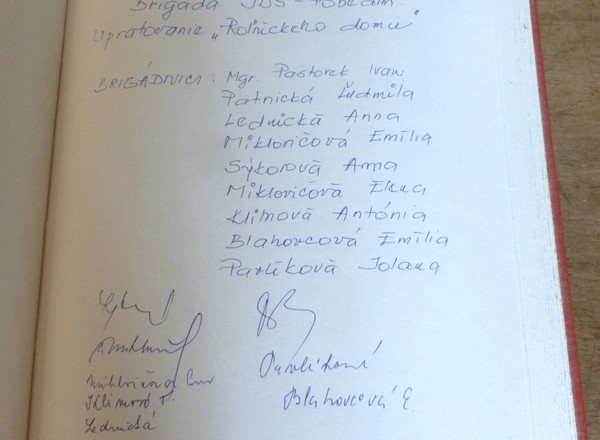 Brigáda JDS - Pobedim
Upratovanie „Roľníckeho domu"
BRIGÁDNICI: Mgr. Pastorek Ivan
Patnická Ľudmila
Lednická Anna
Mikloričová Emília
Sýkorová Anna
Miklovičová Elena
Klimová Antónia
Blahovcová Emília
Pavlíková Jolana
Pavlíková
Miklovičová
Klimová
Blahovcová E.
Lednická